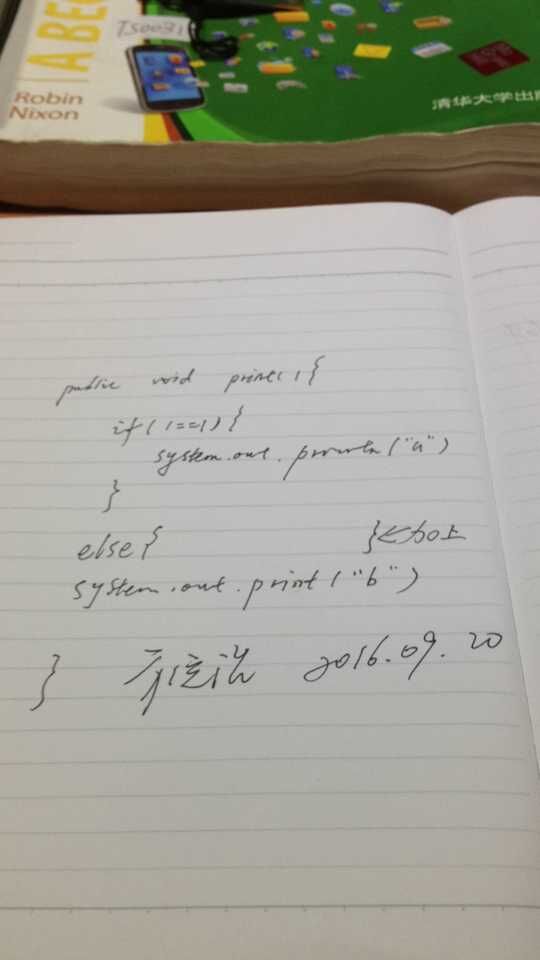 ABC
TS0031
Robin
Nixon
清华大学出版
public void print( ){
if(1==1){
system.out.println("a")
}
else{ }←加上
system.out.print("b")
} 2016.09.20